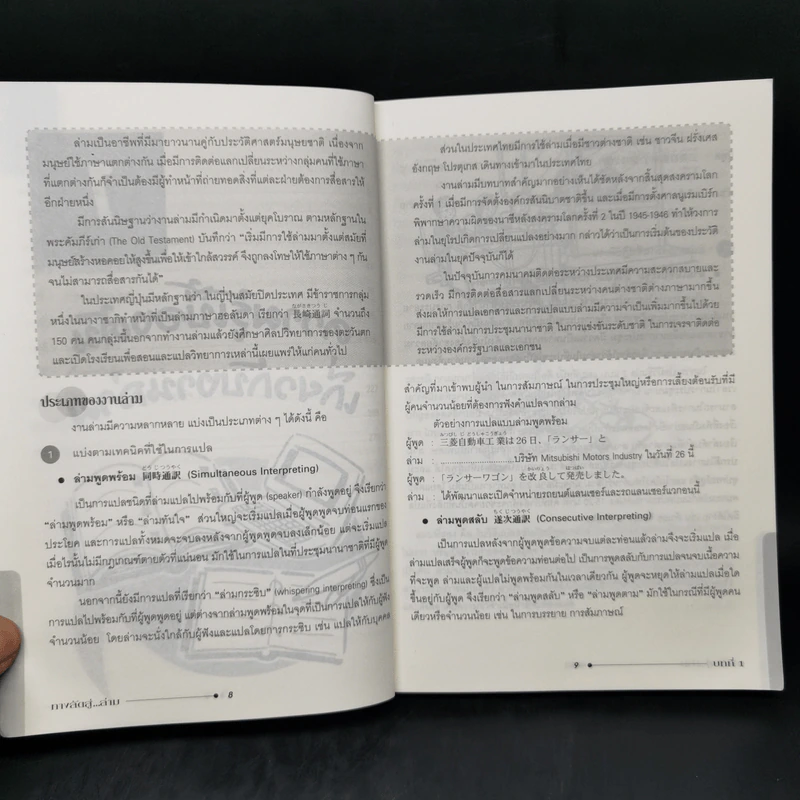 ล่ามเป็นอาชีพที่มีมายาวนานคู่กับประวัติศาสตร์มนุษยชาติ เนื่องจาก
มนุษย์ใช้ภาษาแตกต่างกัน เมื่อมีการติดต่อแลกเปลี่ยนระหว่างกลุ่มคนที่ใช้ภาษา
ที่แตกต่างกันก็จำเป็นต้องมีผู้ทำหน้าที่ถ่ายทอดสิ่งที่แต่ละฝ่ายต้องการสื่อสารให้
อีกฝ่ายหนึ่ง
มีการสันนิษฐานว่างานล่ามมีกำเนิดมาตั้งแต่ยุคโบราณ ตามหลักฐานใน
พระคัมภีร์เก่า (The Old Testament) บันทึกว่า "เริ่มมีการใช้ล่ามมาตั้งแต่สมัยที่
มนุษย์สร้างหอคอยให้สูงขึ้นเพื่อให้เข้าใกล้สวรรค์ จึงถูกลงโทษให้ใช้ภาษาต่าง ๆ กัน
จนไม่สามารถสื่อสารกันได้"
ในประเทศญี่ปุ่นมีหลักฐานว่า ในญี่ปุ่นสมัยปิดประเทศ มีข้าราชการกลุ่ม
หนึ่งในนางาซากิทำหน้าที่เป็นล่ามภาษาฮอลันดา เรียกว่า 長崎通詞 จำนวนถึง
150 คน คนกลุ่มนี้นอกจากทำงานล่ามแล้วยังศึกษาศิลปวิทยาการของตะวันตก
และเปิดโรงเรียนเพื่อสอนและแปลวิทยาการเหล่านี้เผยแพร่ให้แก่คนทั่วไป
ประเภทของงานล่าม
งานล่ามมีความหลากหลาย แบ่งเป็นประเภทต่าง ๆ ได้ดังนี้ คือ
1 แบ่งตามเทคนิคที่ใช้ในการแปล
• ล่ามพูดพร้อม 同時通訳 (Simultaneous Interpreting)
เป็นการแปลชนิดที่ล่ามแปลไปพร้อมกับที่ผู้พูด (speaker) กำลังพูดอยู่ จึงเรียกว่า
"ล่ามพูดพร้อม" หรือ "ล่ามทันใจ" ส่วนใหญ่จะเริ่มแปลเมื่อผู้พูดพูดจบท่อนแรกของ
ประโยค และการแปลทั้งหมดจะจบลงหลังจากที่ผู้พูดพูดจบลงเล็กน้อย แต่จะเริ่มแปล
เมื่อไรนั้นไม่มีกฎเกณฑ์ตายตัวที่แน่นอน มักใช้ในการแปลในที่ประชุมนานาชาติที่มีผู้พูด
จำนวนมาก
นอกจากนี้ยังมีการแปลที่เรียกว่า "ล่ามกระซิบ" (whispering interpreting) ซึ่งเป็น
การแปลไปพร้อมกับที่ผู้พูดพูดอยู่ แต่ต่างจากล่ามพูดพร้อมในจุดที่เป็นการแปลให้กับผู้ฟัง
จำนวนน้อย โดยล่ามจะนั่งใกล้กับผู้ฟังและแปลโดยการกระซิบ เช่น แปลให้กับบุคคล
ทางลัดสู่...ล่าม 8
ส่วนในประเทศไทยมีการใช้ล่ามเมื่อมีชาวต่างชาติ เช่น ชาวจีน ฝรั่งเศส
อังกฤษ โปรตุเกส เดินทางเข้ามาในประเทศไทย
งานล่ามมีบทบาทสำคัญมากอย่างเห็นได้ชัดหลังจากสิ้นสุดสงครามโลก
ครั้งที่ 1 เมื่อมีการจัดตั้งองค์กรสันนิบาตชาติขึ้น และเมื่อมีการตั้งศาลนูเรมเบิร์ก
พิพากษาความผิดของนาซีหลังสงครามโลกครั้งที่ 2 ในปี 1945-1946 ทำให้วงการ
ล่ามในยุโรปเกิดการเปลี่ยนแปลงอย่างมาก กล่าวได้ว่าเป็นการเริ่มต้นของประวัติ
งานล่ามในยุคปัจจุบันก็ได้
ในปัจจุบันการคมนาคมติดต่อระหว่างประเทศมีความสะดวกสบายและ
รวดเร็ว มีการติดต่อสื่อสารแลกเปลี่ยนระหว่างคนต่างชาติต่างภาษามากขึ้น
ส่งผลให้การแปลเอกสารและการแปลแบบล่ามมีความจำเป็นเพิ่มมากขึ้นไปด้วย
มีการใช้ล่ามในการประชุมนานาชาติ ในการแข่งขันระดับชาติ ในการเจรจาติดต่อ
ระหว่างองค์กรรัฐบาลและเอกชน
สำคัญที่มาเข้าพบผู้นำ ในการสัมภาษณ์ ในการประชุมใหญ่หรือการเลี้ยงต้อนรับที่มี
ผู้คนจำนวนน้อยที่ต้องการฟังคำแปลจากล่าม
ตัวอย่างการแปลแบบล่ามพูดพร้อม
ผู้พูด : 三菱自動車工業は26日、「ランサー」と
ล่าม : ..............................บริษัท Mitsubishi Motors Industry ในวันที่ 26 นี้
ผู้พูด : 「ランサーワゴン」を改良して発売しました。
ล่าม : ได้พัฒนาและเปิดจำหน่ายรถยนต์แลนเซอร์และรถแลนเซอร์แวกอนนี้
• ล่ามพูดสลับ 逐次通訳 (Consecutive Interpreting)
เป็นการแปลหลังจากผู้พูดพูดข้อความจบแต่ละท่อนแล้วล่ามจึงจะเริ่มแปล เมื่อ
ล่ามแปลเสร็จผู้พูดก็จะพูดข้อความท่อนต่อไป เป็นการพูดสลับกับการแปลจนจบเนื้อความ
ที่จะพูด ล่ามและผู้แปลไม่พูดพร้อมกันในเวลาเดียวกัน ผู้พูดจะหยุดให้ล่ามแปลเมื่อใด
ขึ้นอยู่กับผู้พูด จึงเรียกว่า "ล่ามพูดสลับ" หรือ "ล่ามพูดตาม" มักใช้ในกรณีที่มีผู้พูดคน
เดียวหรือจำนวนน้อย เช่น ในการบรรยาย การสัมภาษณ์
9 บทที่ 1